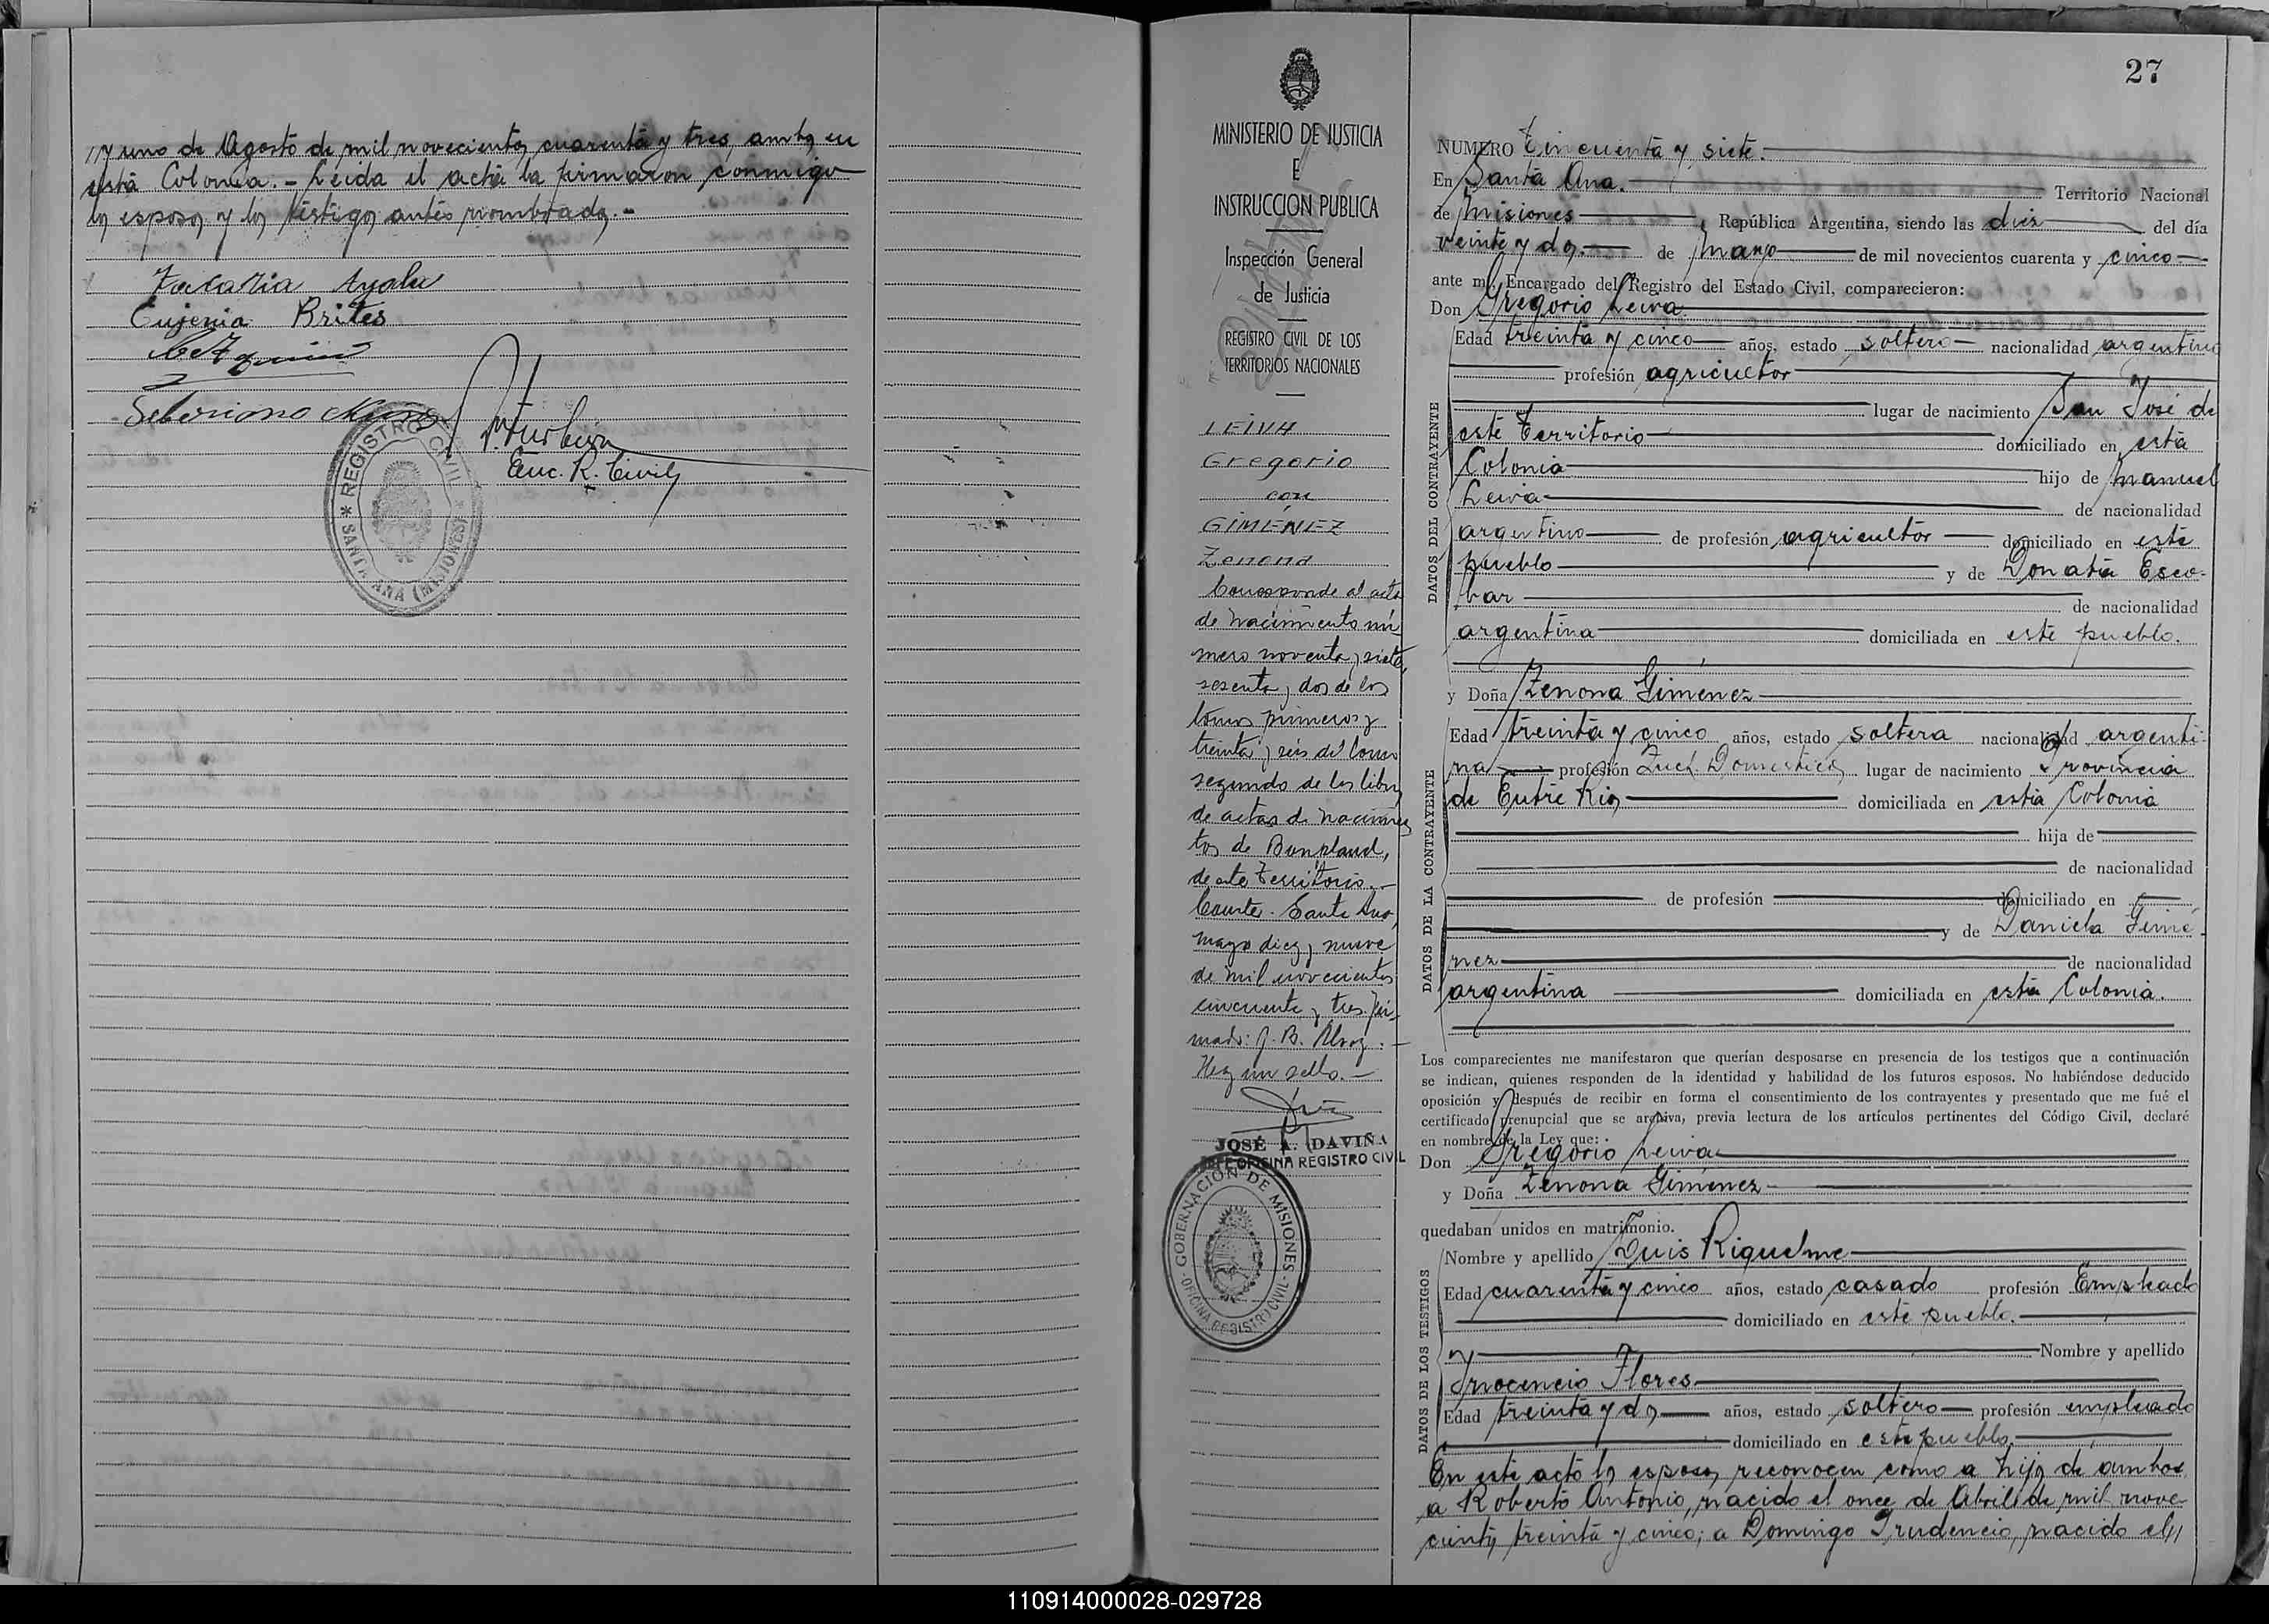 y uno de Agosto de mil novecientos cuarenta y tres, ambos en
esta Colonia.- Leida el acta la firmaron conmigo
los esposos y los testigos antes nombrados.-
Ayala
Eujenia Brites
Seberiano
Enc. R. Civil
* REGISTRO CIVIL *
SANTA ANA (MISIONES)
MINISTERIO DE JUSTICIA
E
INSTRUCCION PUBLICA
Inspección General
de Justicia
REGISTRO CIVIL DE LOS
TERRITORIOS NACIONALES
LEIVA
Gregorio
con
GIMENEZ
Zenona
Corresponde al acta
de nacimiento nú-
mero noventa y siete,
sesenta y dos de los
tomos primeros y
treinta y seis del tomo
segundo de los libros
de actas de nacimien
tos de Bonpland,
de este Territorio.-
Conste. Santa Ana,
mayo diez y nueve
de mil novecientos
cincuenta y tres. Fir-
mado: J. B. .-
Hay un sello.-
JOSÉ A. DAVIÑA
JEFE OFICINA REGISTRO CIVIL
GOBERNACIÓN DE MISIONES
OFICINA REGISTRO CIVIL
27
NUMERO Cincuenta y siete.
En Santa Ana. Territorio Nacional
de Misiones, República Argentina, siendo las diez del día
veinte y dos. de Mayo de mil novecientos cuarenta y cinco
ante mí, Encargado del Registro del Estado Civil, comparecieron:
Don Gregorio Leiva
DATOS DEL CONTRAYENTE
Edad treinta y cinco años, estado soltero nacionalidad argentino
profesión agricultor
lugar de nacimiento San José de
este Territorio domiciliado en esta
Colonia hijo de Manuel
Leiva de nacionalidad
argentino de profesión agricultor domiciliado en este
pueblo y de Donata Esco-
bar de nacionalidad
argentina domiciliada en este pueblo.
y Doña Zenona Giménez
DATOS DE LA CONTRAYENTE
Edad treinta y cinco años, estado soltera nacionalidad argenti-
na profesión Domesticos lugar de nacimiento Provincia
de Entre Rios domiciliada en esta Colonia
hija de
de nacionalidad
de profesión domiciliado en
y de Daniela Gimé-
nez de nacionalidad
argentina domiciliada en esta Colonia.
Los comparecientes me manifestaron que querían desposarse en presencia de los testigos que a continuación
se indican, quienes responden de la identidad y habilidad de los futuros esposos. No habiéndose deducido
oposición y después de recibir en forma el consentimiento de los contrayentes y presentado que me fué el
certificado prenupcial que se archiva, previa lectura de los artículos pertinentes del Código Civil, declaré
en nombre de la Ley que:
Don Gregorio Leiva
y Doña Zenona Giménez
quedaban unidos en matrimonio.
DATOS DE LOS TESTIGOS
Nombre y apellido Luis Riquelme
Edad cuarenta y cinco años, estado casado profesión Empleado
domiciliado en este pueblo.
y Nombre y apellido
Inocencio Flores
Edad treinta y dos años, estado soltero profesión empleado
domiciliado en este pueblo
En este acto los esposos reconocen como a hijos de ambos
a Roberto Antonio, nacido el once de Abril de mil nove-
cientos treinta y cinco; a Domingo Prudencio, nacido el//
110914000028-029728